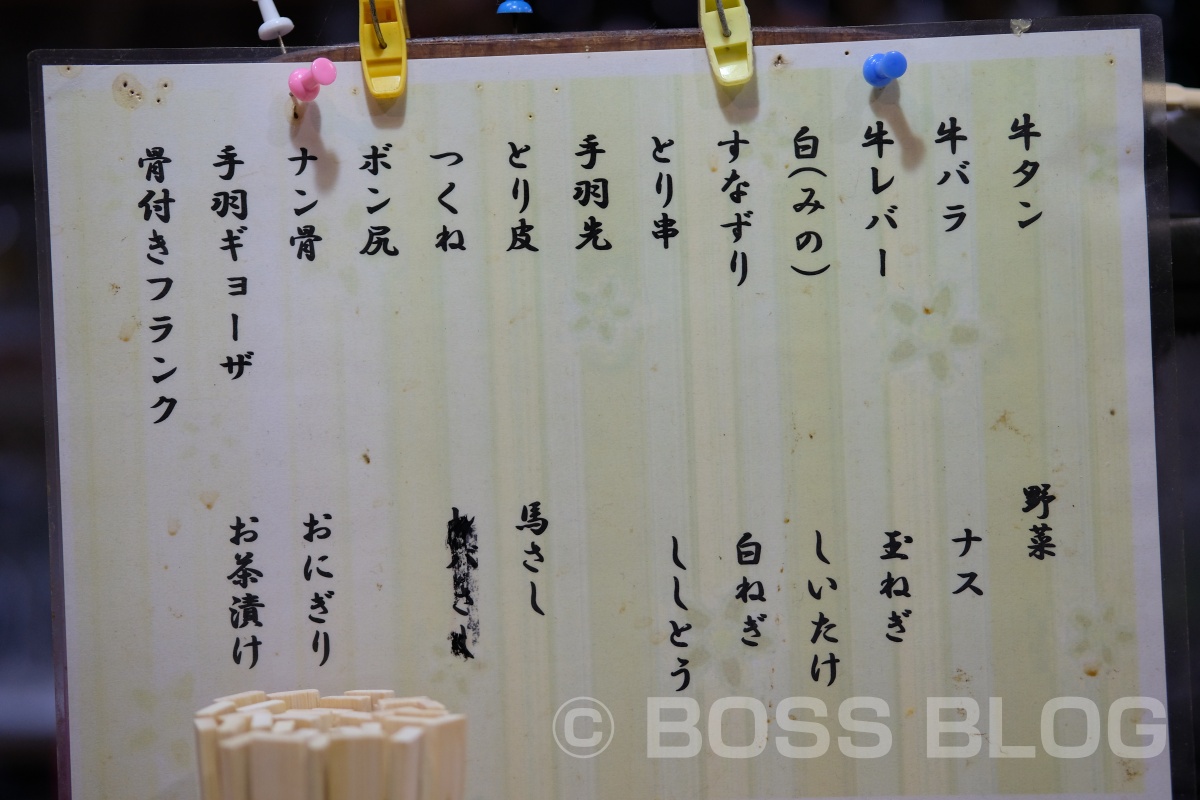 牛タン
牛バラ
牛レバー
白(みの)
すなずり
とり串
手羽先
とり皮
つくね
ボン尻
ナン骨
手羽ギョーザ
骨付きフランク
野菜
ナス
玉ねぎ
しいたけ
白ねぎ
ししとう
馬さし
おにぎり
お茶漬け
© BOSS BLOG